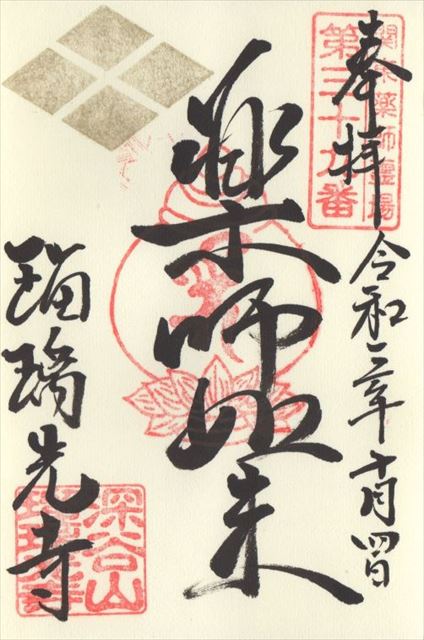 奉拝 令和二年十月四日
関東薬師霊場
第三十九番
薬師如来
瑠璃光寺
深谷山
瑠璃光寺